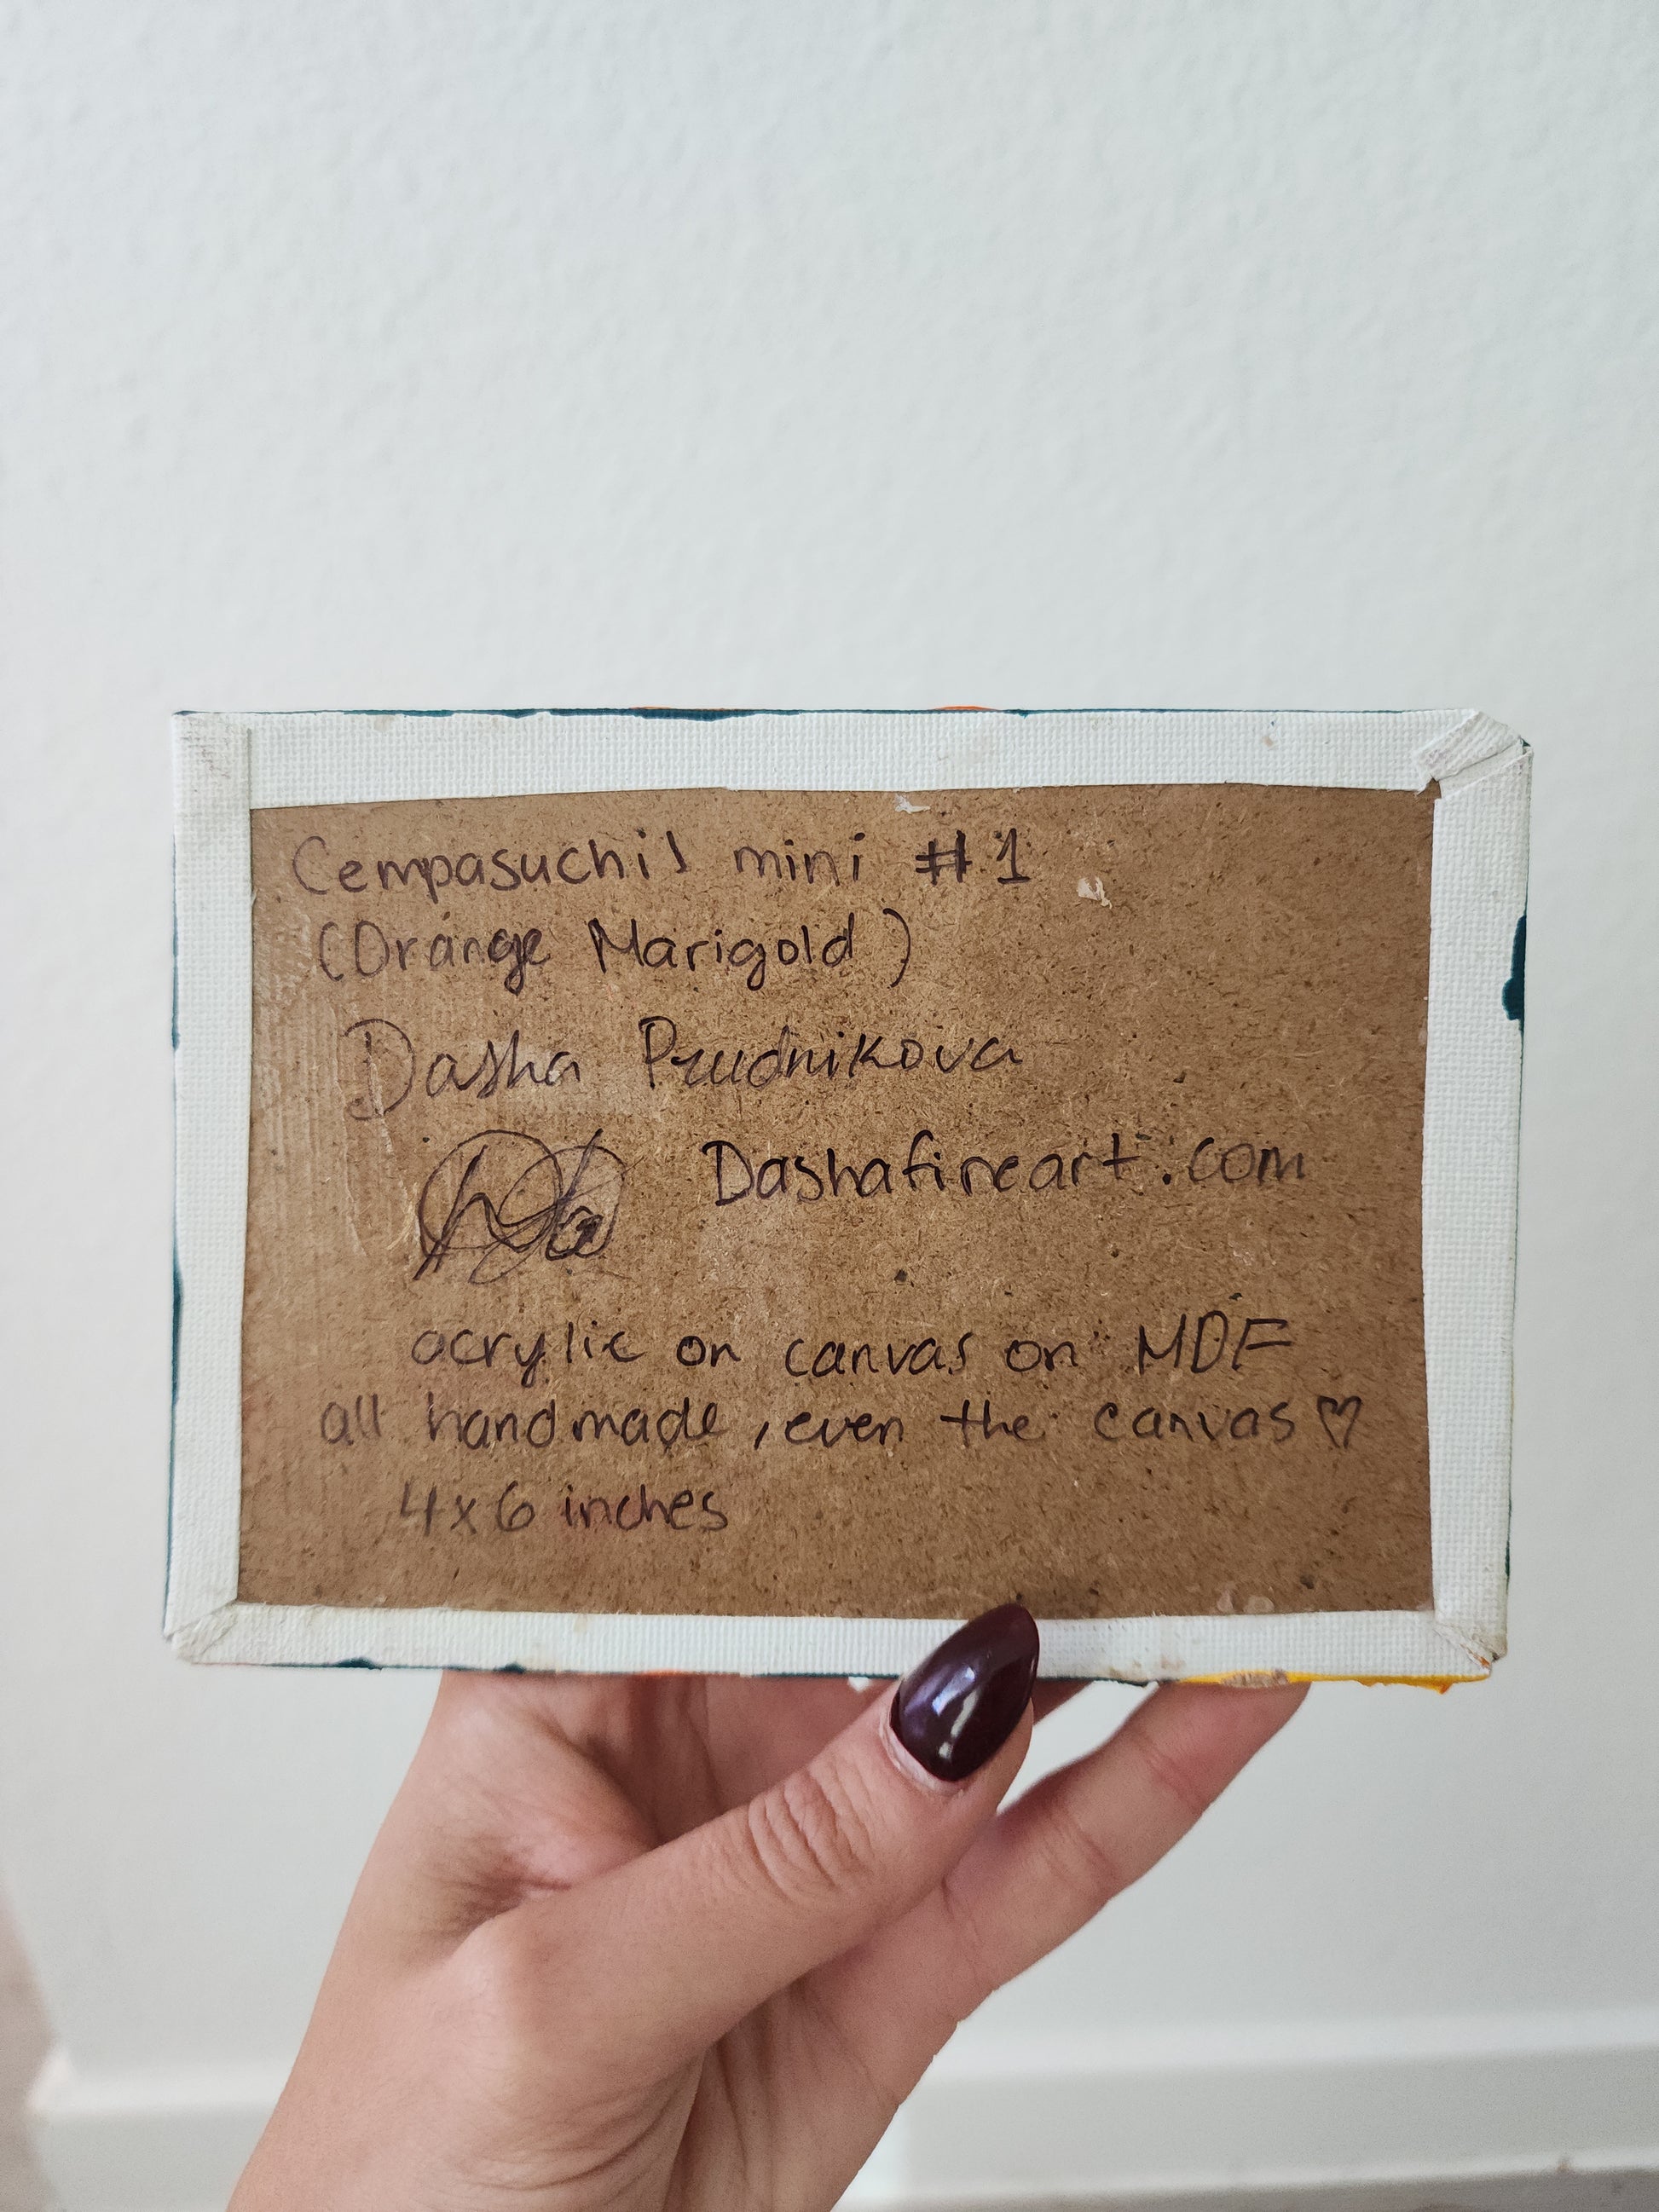 Cempasuchil mini #1
(Orange Marigold)
Dasha Prudnikova
Dashafineart.com
acrylic on canvas on MDF
all handmade, even the canvas ♡
4x6 inches